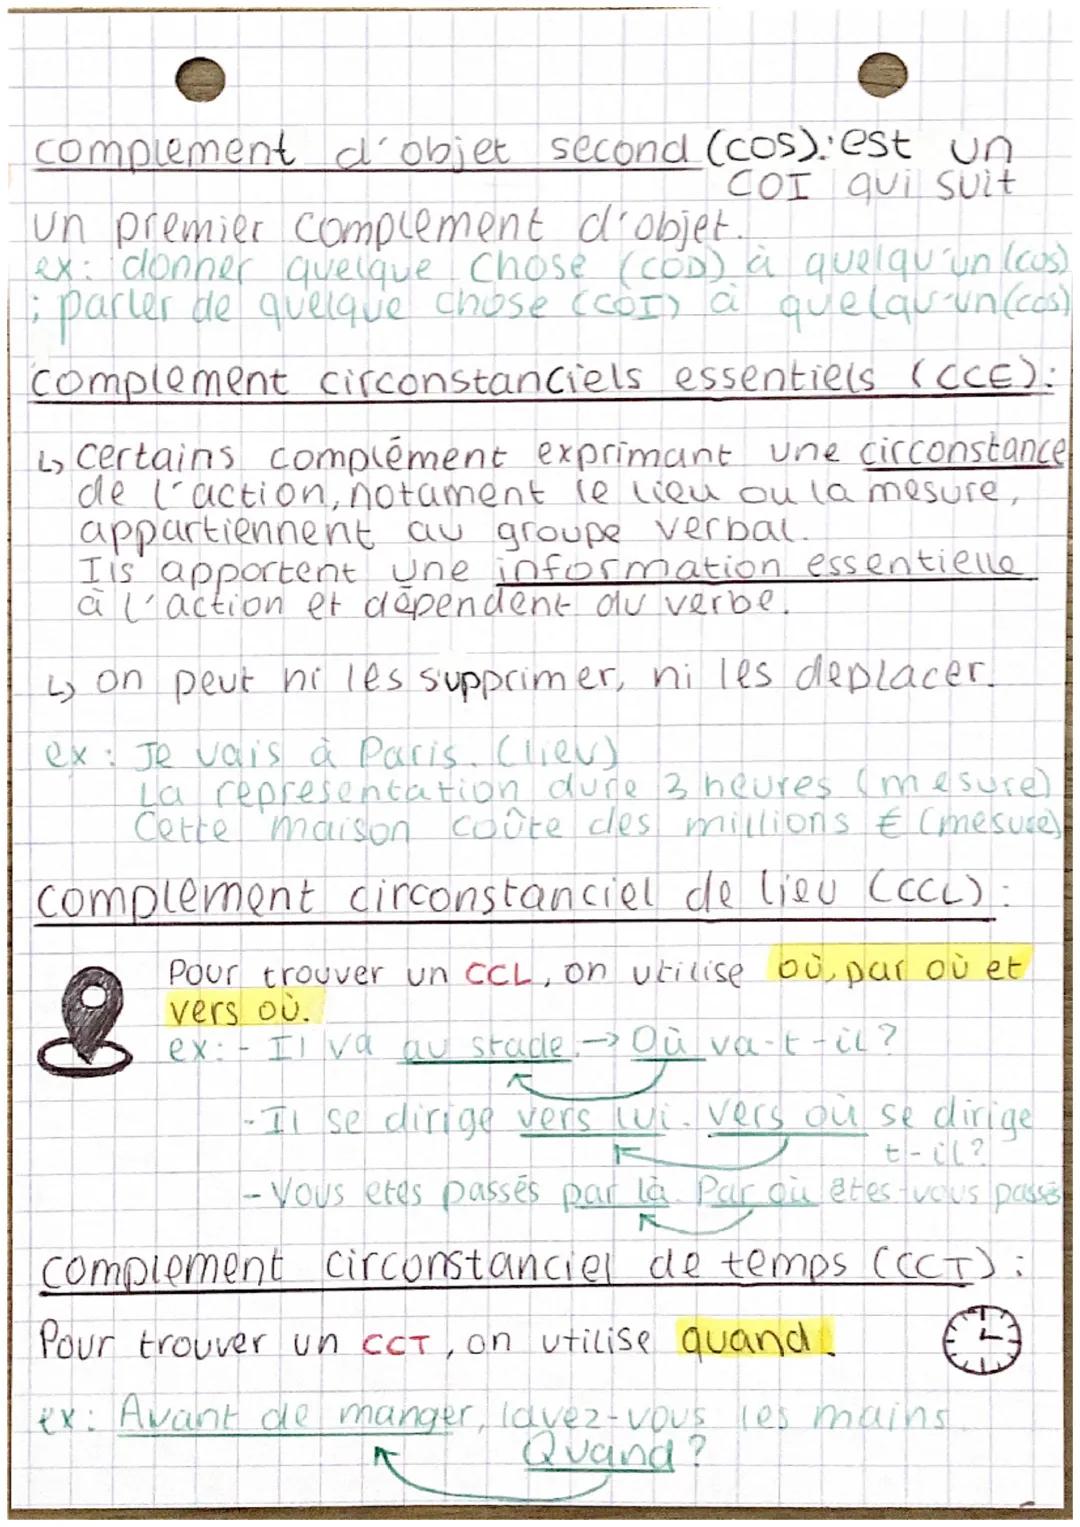 complement d'objet second (cos): est un
COI qui suit
un premier complement d'objet.
ex: donner quelque chose (COD) à quelqu'un (cos)
; parler de quelque chose (COI) à quelqu'un (cos)
complement circonstanciels essentiels (CCE):
↳ certains complément exprimant une circonstance
de l'action, notament le lieu ou la mesure,
appartiennent au groupe verbal.
Ils apportent une information essentielle
à l'action et dépendent du verbe.
↳ on peut ni les supprimer, ni les deplacer.
ex: Je vais à Paris. (lieu)
La representation dure 3 heures (mesure)
Cette maison coûte des millions € (mesure)
complement circonstanciel de lieu (CCL):
Pour trouver un CCL, on utilise où, par où et
vers où.
ex: - Il va au stade. → Où va-t-il?
- Il se dirige vers lui. vers où se dirige
t-il?
- Vous etes passés par là. Par où êtes-vous passés
complement circonstanciel de temps (CCT):
Pour trouver un CCT, on utilise quand.
ex: Avant de manger, lavez-vous les mains.
Quand?